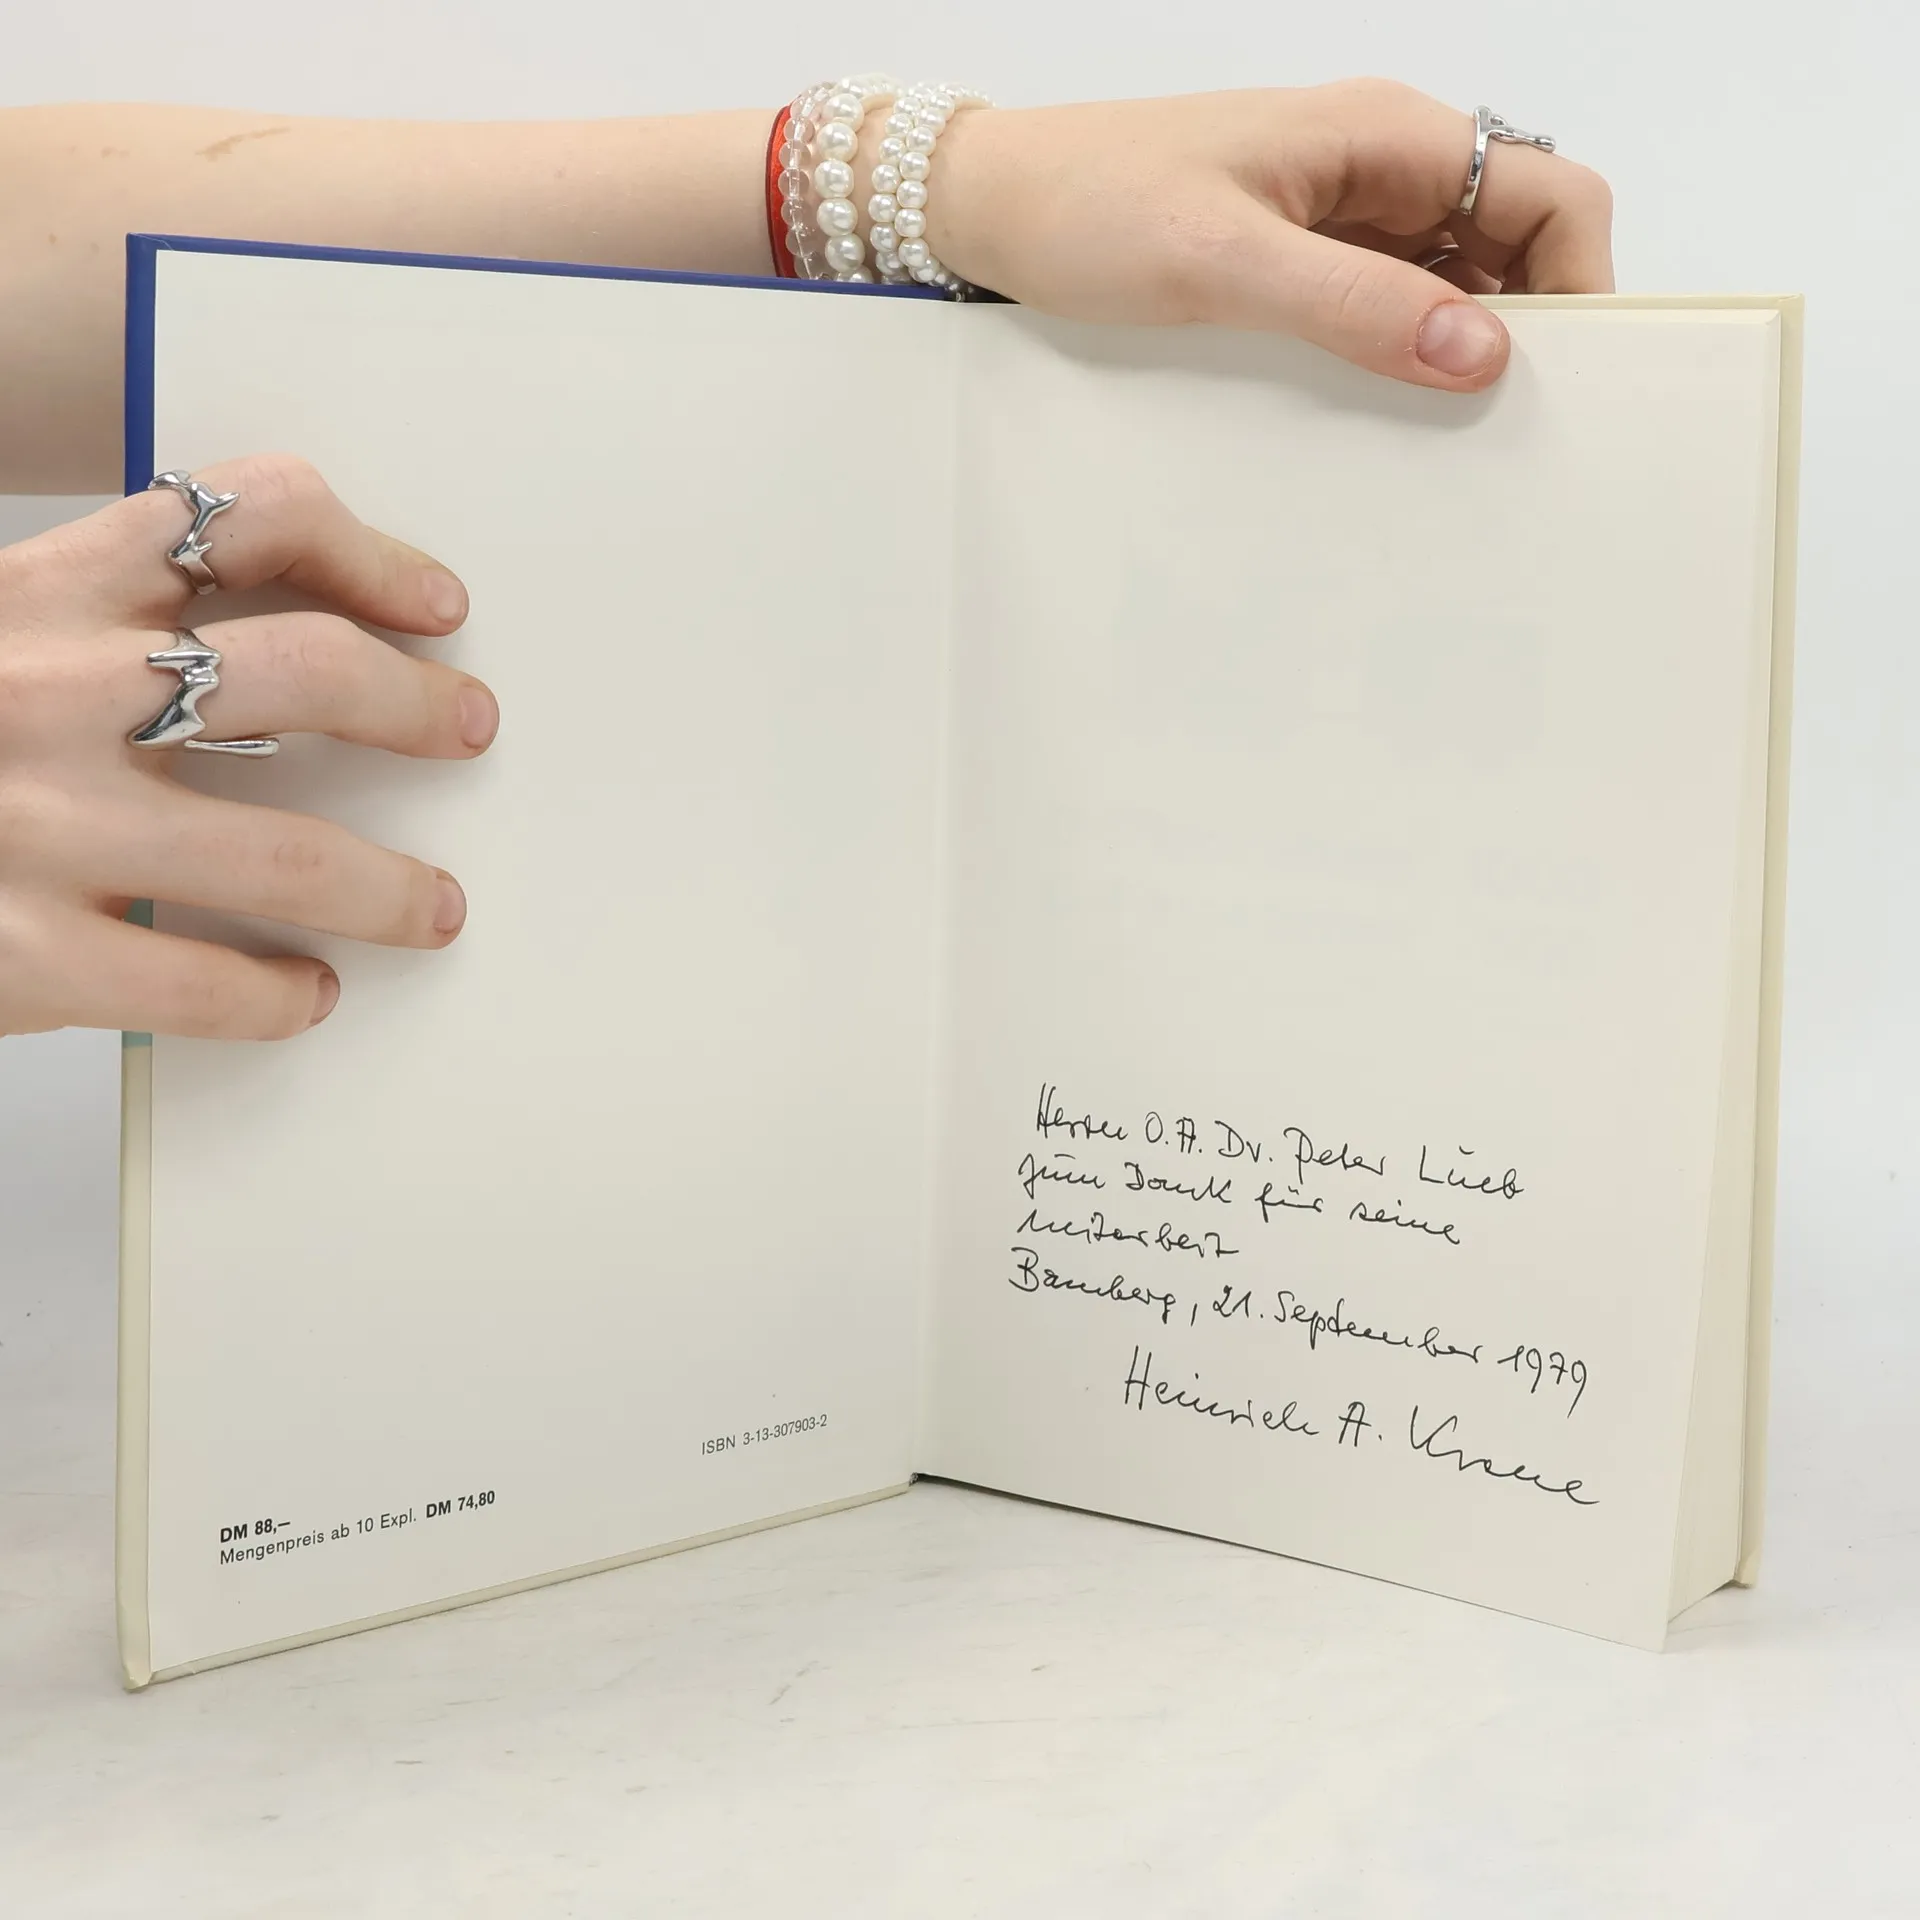 ISBN 3-13-307903-2
DM 88,—
Mengenpreis ab 10 Expl. DM 74,80
Herrn O.A. Dr. Peter Lueb
zum Dank für seine
Mitarbeit
Bamberg, 21. September 1979
Heinrich A. Krone